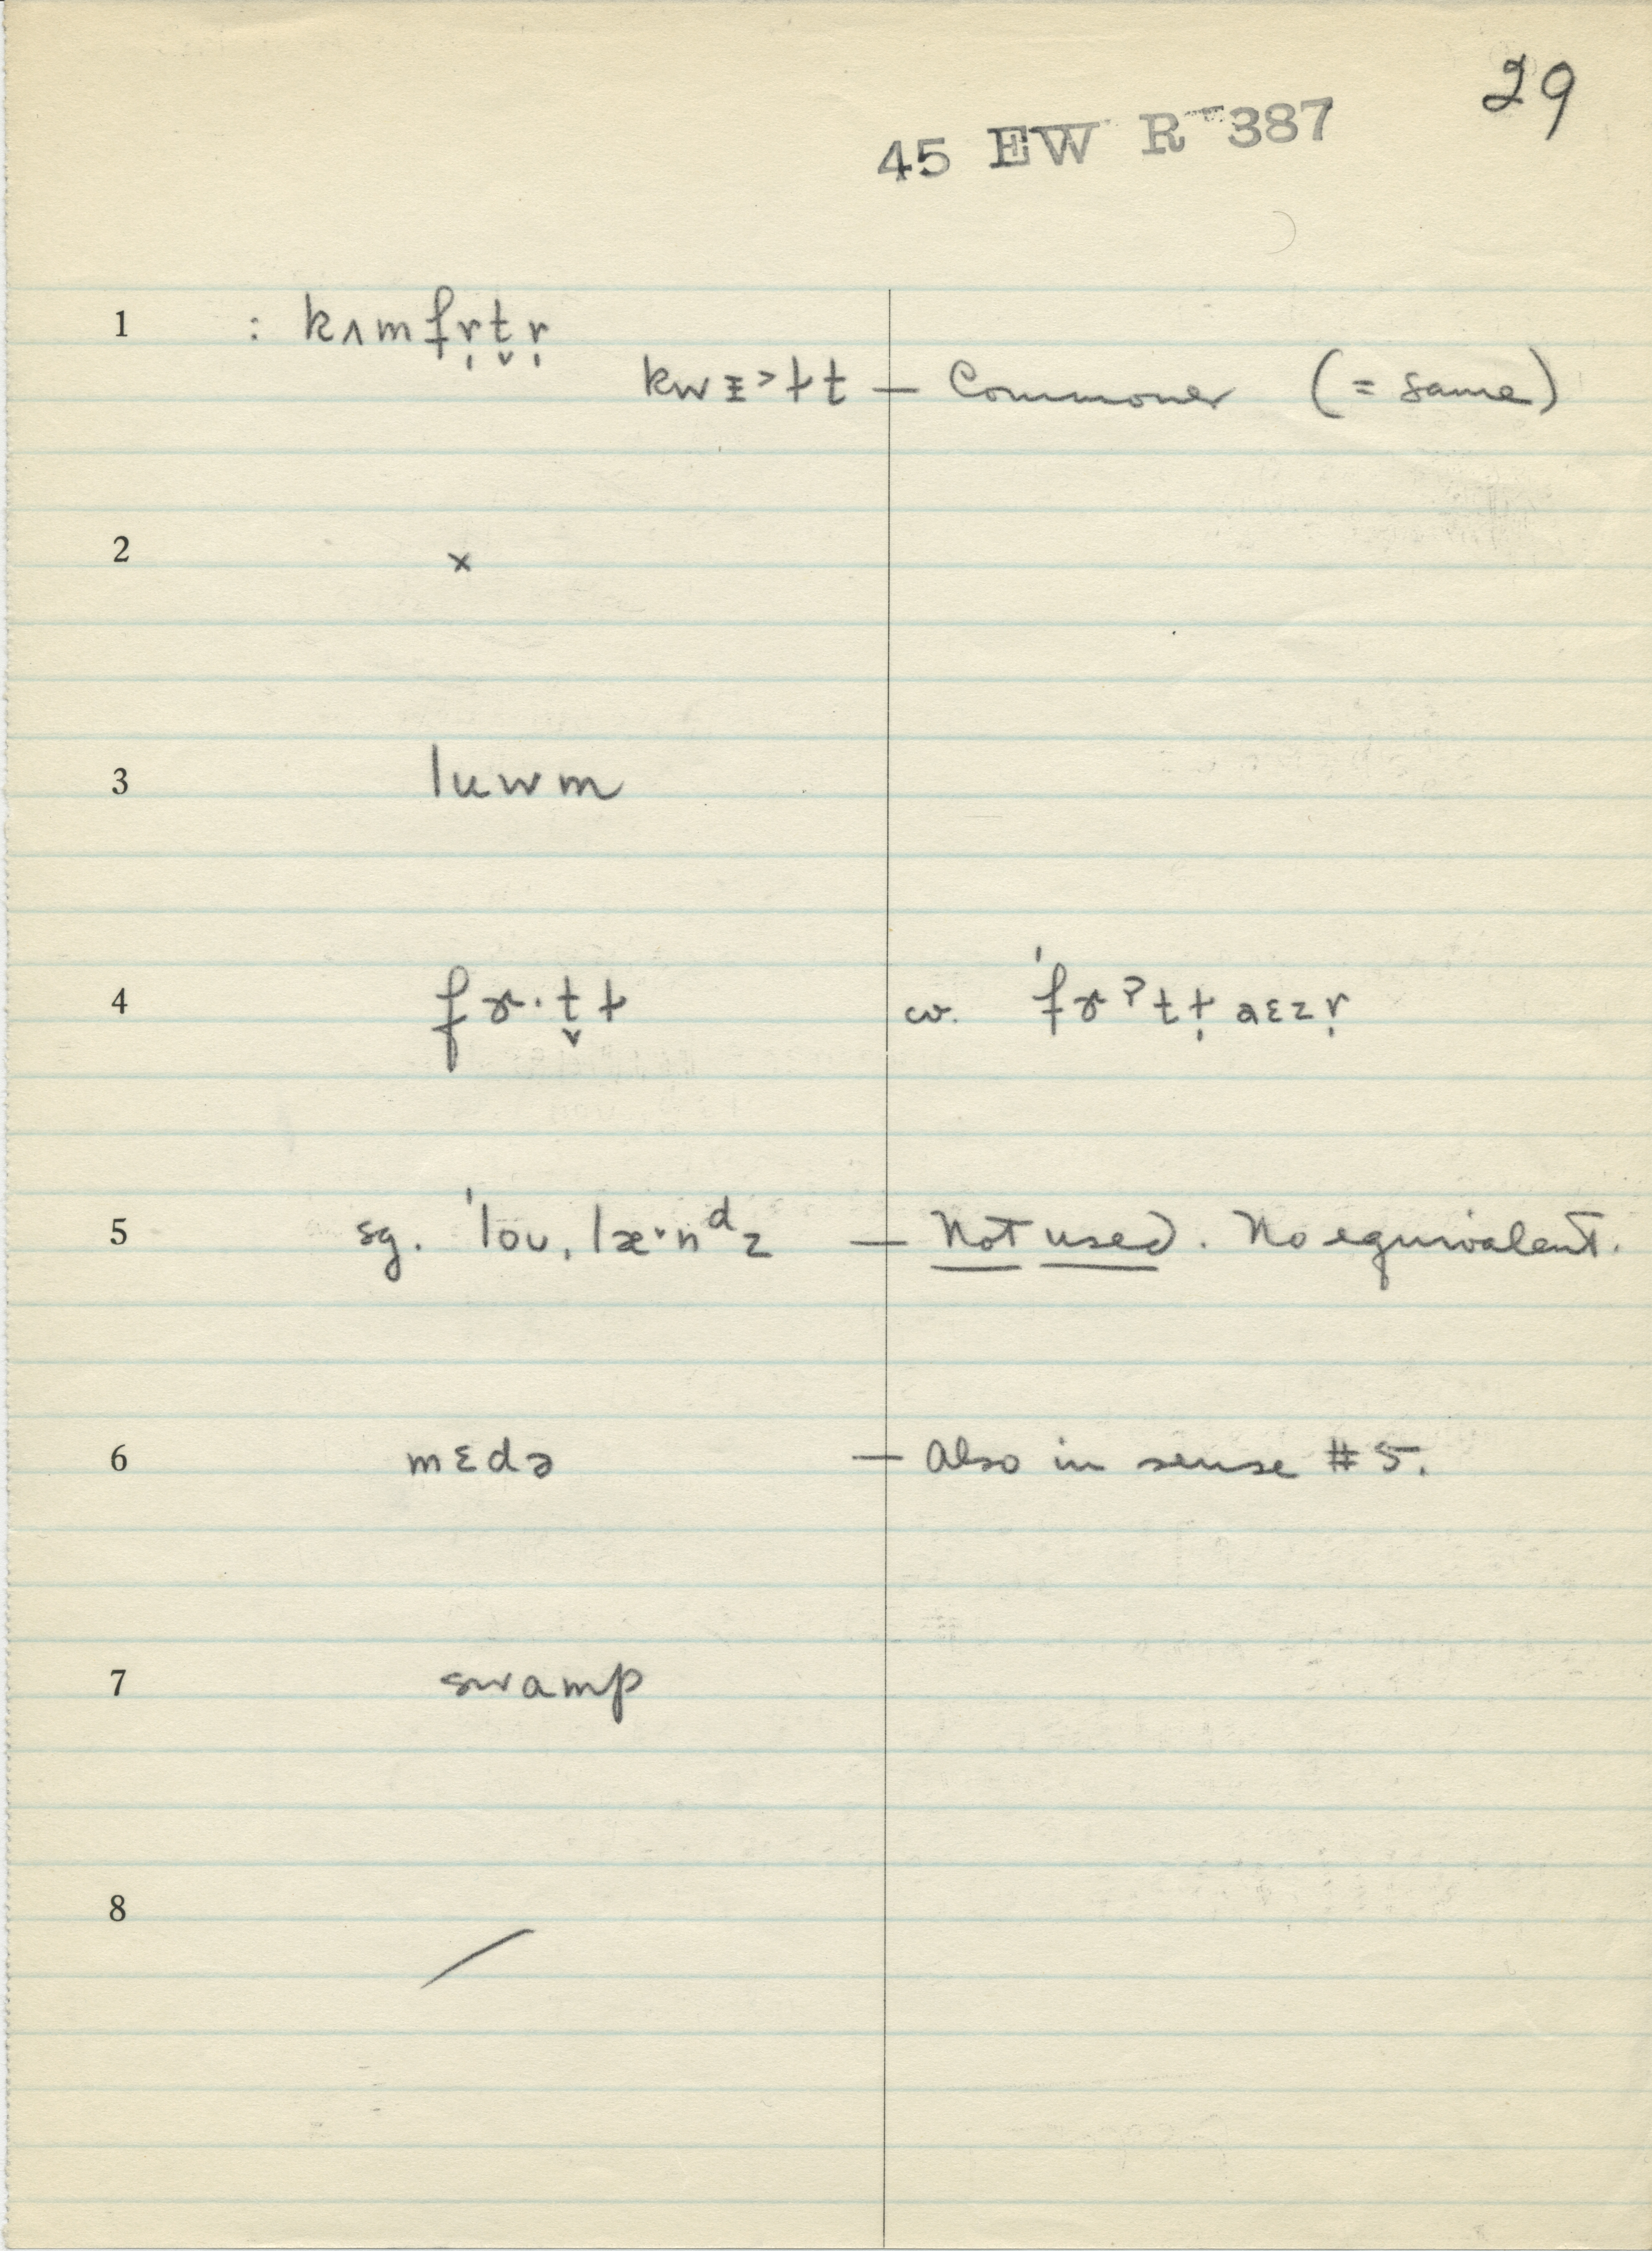 29
45 EW R 387
1 : kʌmfr̩t̬r̩
kwɪ˃ɫt — Commoner (= same)
2 x
3 luwm
4 fɚ·t̬ɫ cv. 'fɚʔtɫ̩ aɛzr̩
5 sg. 'loʊ, læ·nᵈz — Not used. No equivalent.
6 mɛdə — Also in sense #5.
7 swamp
8 /